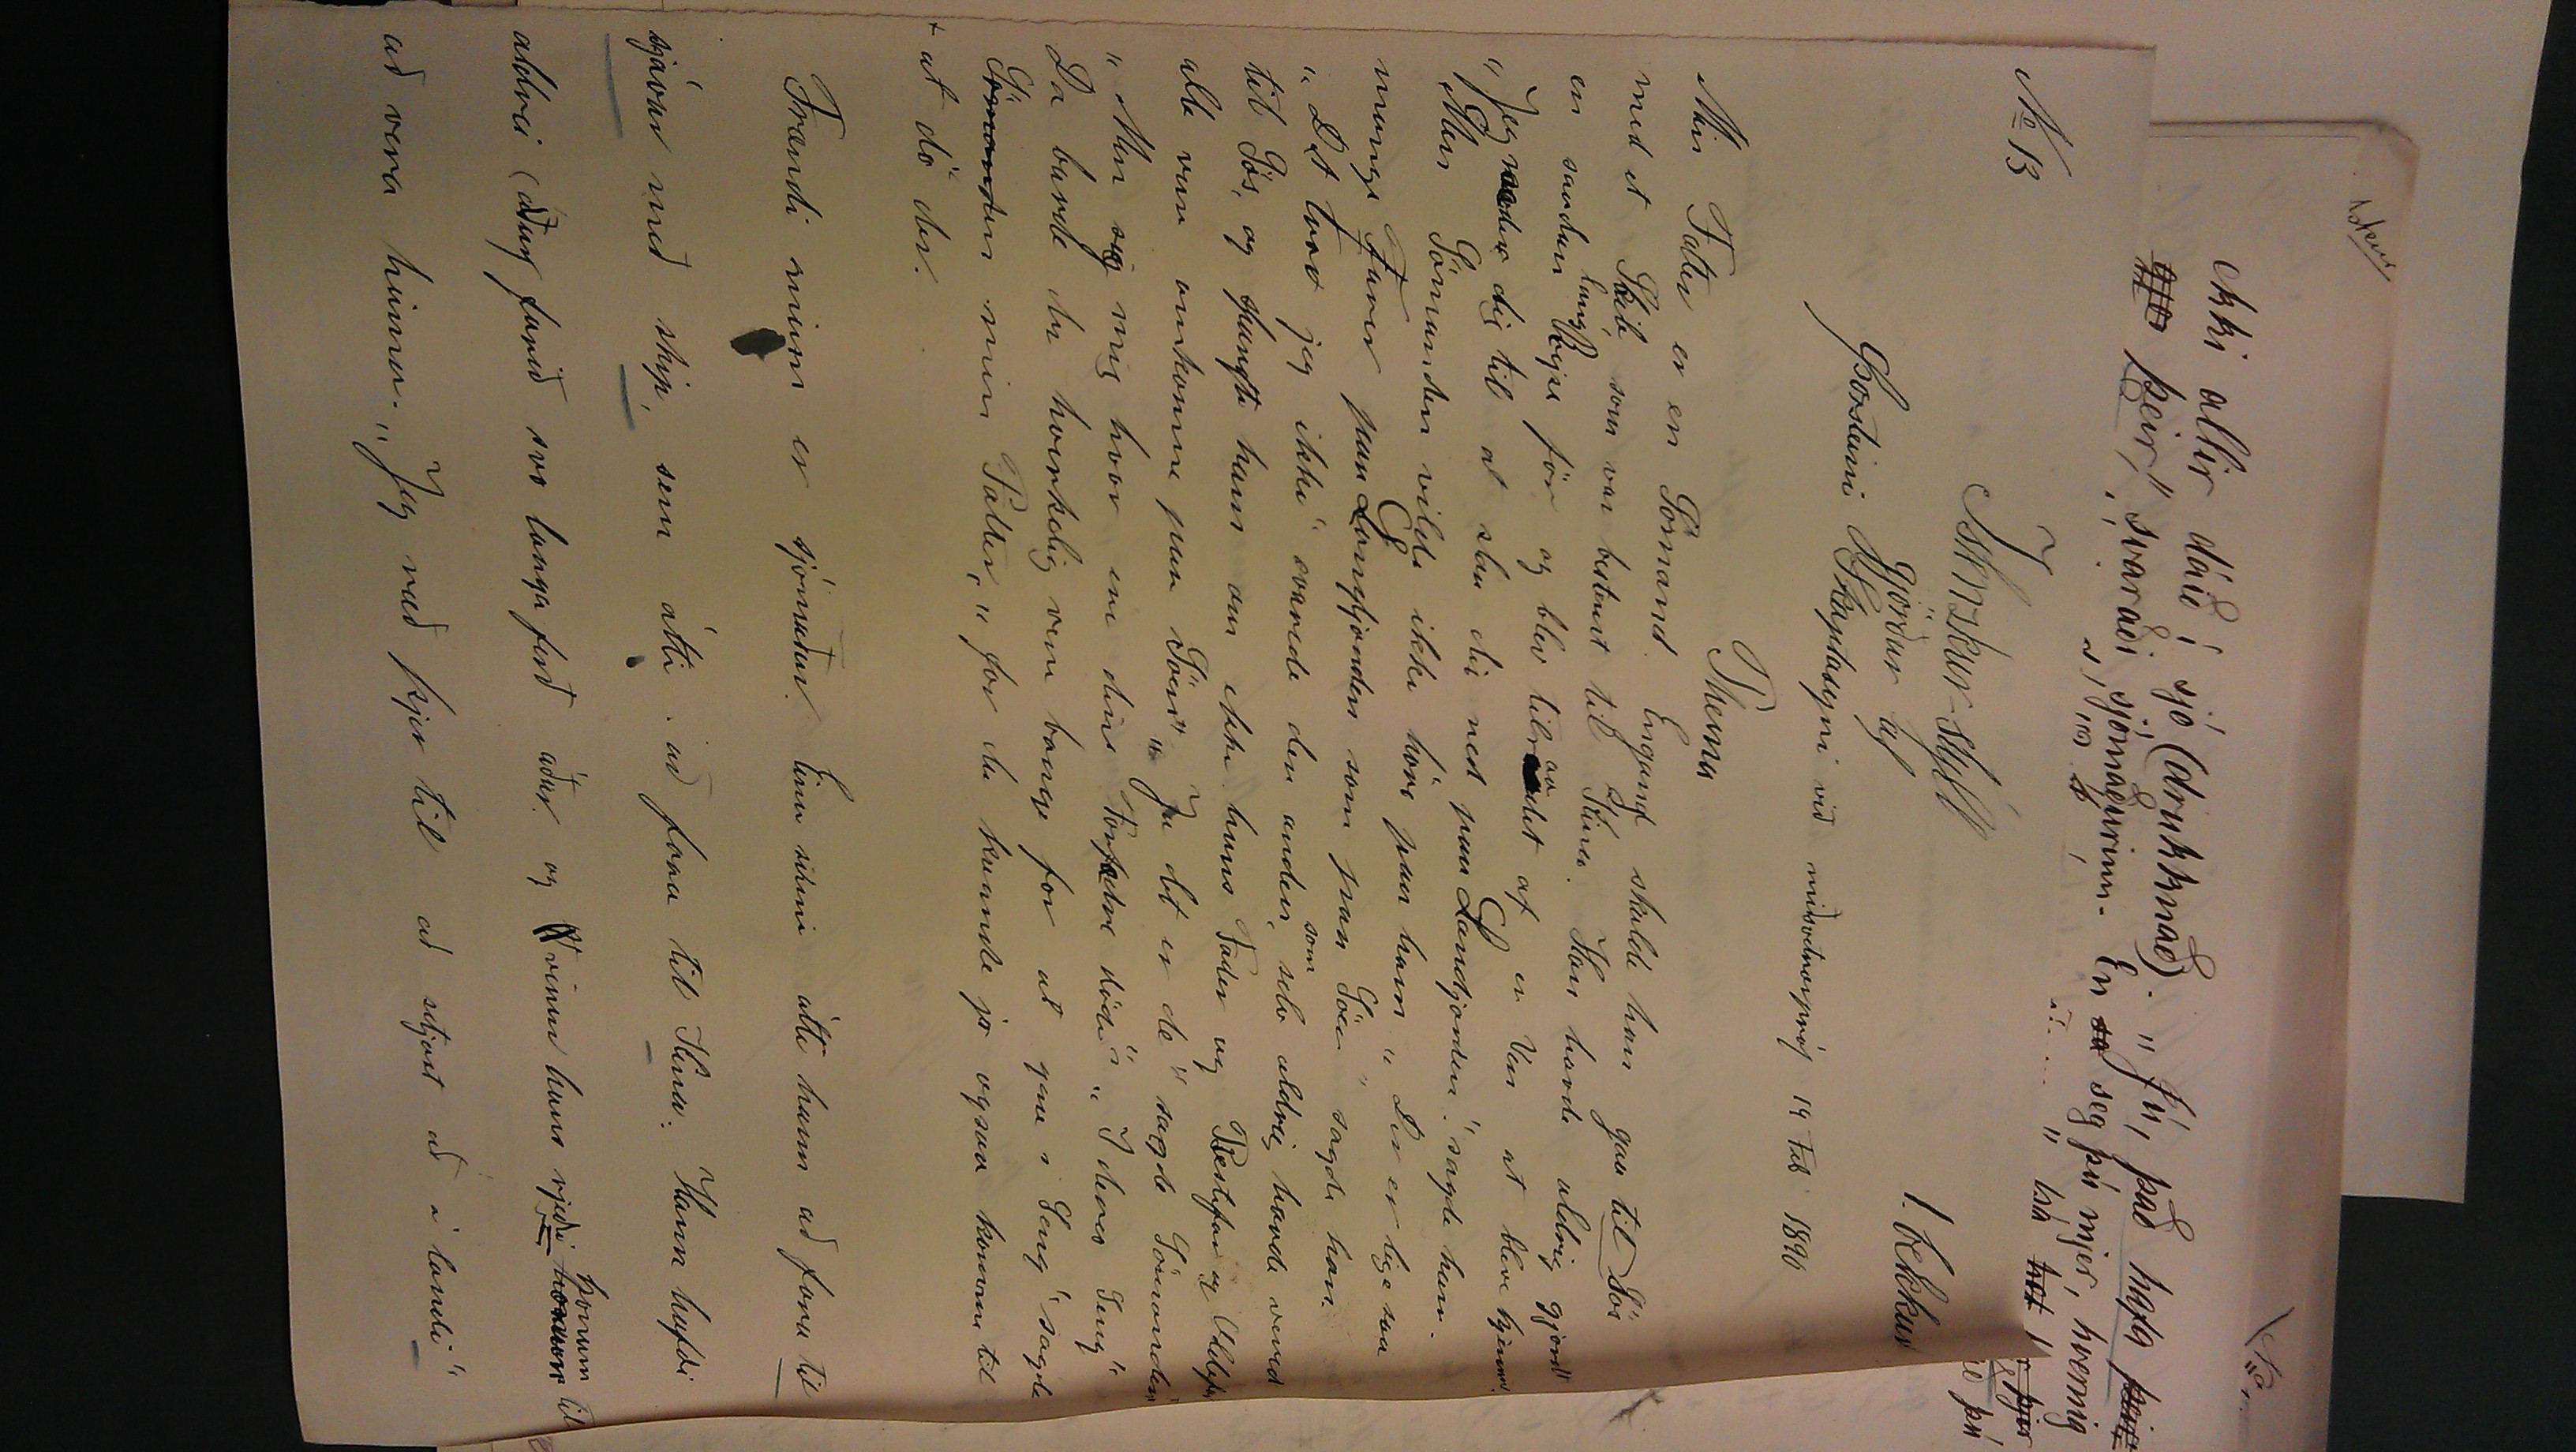 ekki allir dáið í sjó (drukknað). "Jú, það hafa þeir
þeir," svaraði sjómaðurinn. En seg þú mjer, hvernig
No 13
Íslenzkur Stýll
Gjörður af
Þorsteini Skaptasyni við miðsvetrarpróf 14 Feb 1890
1. bekkur
Thema
Min Fætter er en Sömand. Engang skulde han gaa til Sös
med et Skib som var bestemt til Kina. Han havde aldrig gjort
en saadan lang Rejse för og blev tilraadet af en Ven at blive hjemme.
"Jeg raader dig til at slaa dig ned paa Landjorden." sagde han.
Men Sömanden vilde ikke höre paa ham "Der er lige saa
mange Farer paa Landjorden som paa Söen" sagde han.
"Det tror jeg ikke" svarede den anden, som selv aldrig havde været
til Sös, og spurgte ham om ikke hans Fader og Bestefar og Oldefar
alle vare omkomne paa Söen" "Ja det er de" sagde Sömanden
"Men sig mig hvor ere dine Forfædre döde" "I deres Seng"
Da burde du virkelig være bange for at gaa i Seng" sagde
Sömanden min Fætter, "for du kunde jo ogsaa komme til
at dö" der.
Frændi minn er sjómaður. Einu sinni átti hann að fara til
sjávar með skip, sem átti að fara til Kína. Hann hafði
aldrei (áður farið svo langa ferð áður og vinur hans rjeði honum til
að vera heima. "Jeg ræð þjer til að setjast að á landi"